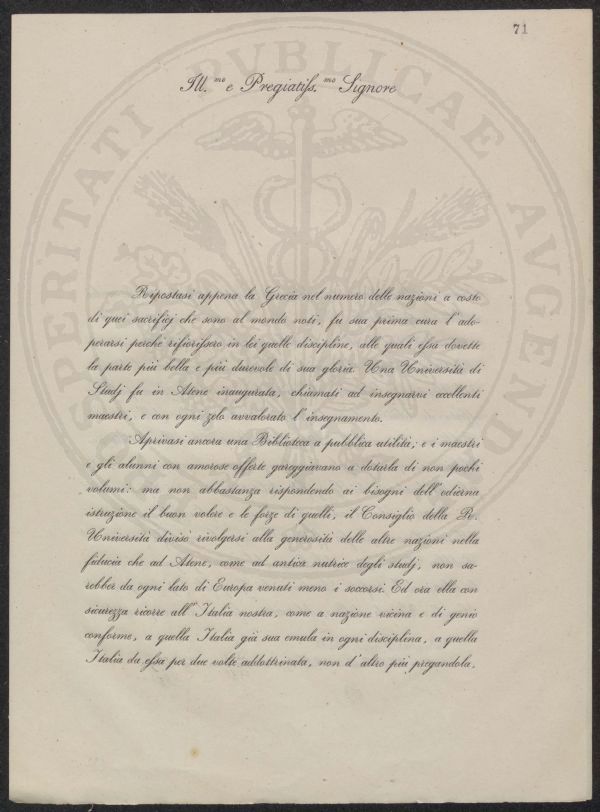 71
Ill.mo e Pregiatiſs.mo Signore
Ripostasi appena la Grecia nel numero delle nazioni a costo
di quei sacrifizj che sono al mondo noti, fu sua prima cura l'ado-
perarsi perchè rifioriſsero in lei quelle discipline, alle quali eſsa dovette
la parte più bella e più durevole di sua gloria. Una Università di
Studj fu in Atene inaugurata, chiamati ad insegnarvi eccellenti
maestri, e con ogni zelo avvalorato l'insegnamento.
Aprivasi ancora una Biblioteca a pubblica utilità; e i maestri
e gli alunni con amorose offerte gareggiavano a dotarla di non pochi
volumi: ma non abbastanza rispondendo ai bisogni dell'odierna
istruzione il buon volere e le forze di quelli, il Consiglio della Re.
Università divisò rivolgersi alla generosità delle altre nazioni nella
fiducia che ad Atene, come ad antica nutrice degli studj, non sa-
rebber da ogni lato di Europa venuti meno i soccorsi. Ed ora ella con
sicurezza ricorre all'Italia nostra, come a nazione vicina e di genio
conforme, a quella Italia già sua emula in ogni disciplina, a quella
Italia da eſsa per due volte addottrinata, non d'altro più pregandola,
PROSPERITATI PVBLICAE AVGENDAE